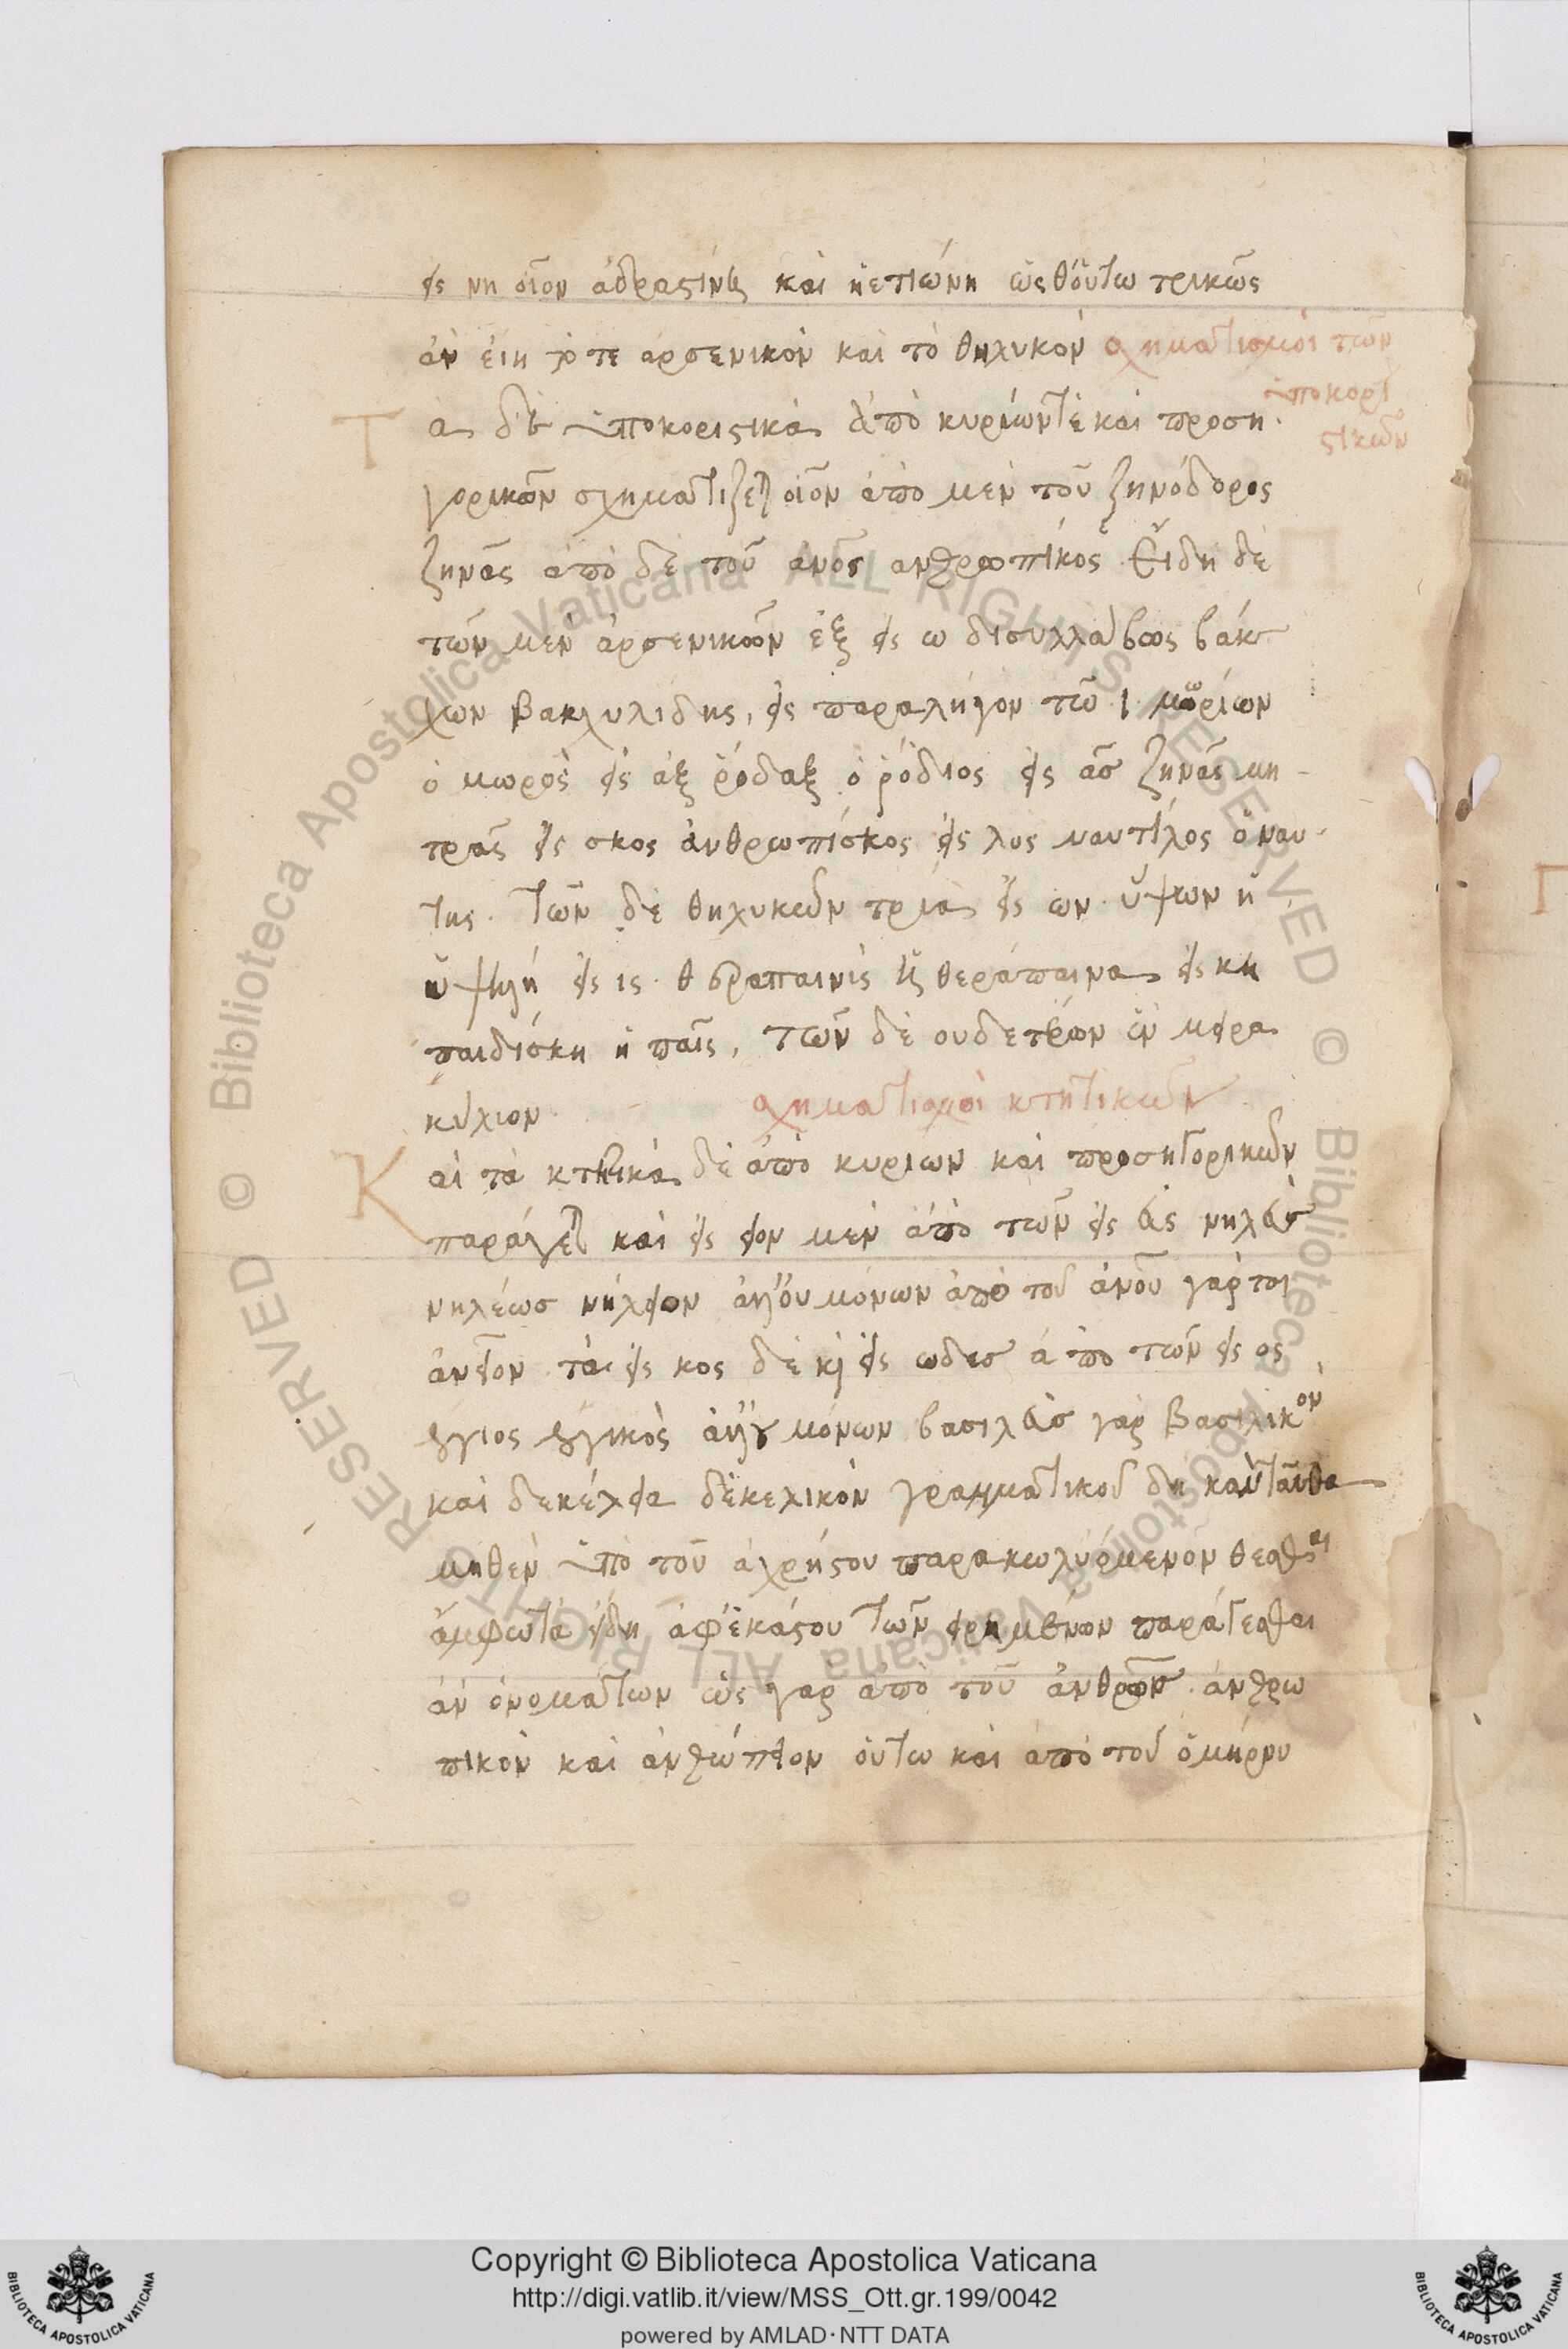 εἰς νη οἷον ἀδραστίνη καὶ ἠετιώνη ὡςθ' οὕτω τρικῶς
ἀν εἴη τό τε ἀρσενικὸν καὶ τὸ θηλυκόν σχηματισμοὶ τῶν
ὑποκορι
στικῶν
Τὰ δὲ ὑποκοριστικὰ ἀπὸ κυρίων τὲ καὶ προση
γορικῶν σχηματίζεται οἷον ἀπὸ μὲν τοῦ ζηνόδορος
ζηνᾶς ἀπὸ δὲ τοῦ ἀνος ἀνθρωπίκος. Εἴδη δὲ
τῶν μὲν ἀρσενικῶν ἓξ εἰς ω δισυλλάβως βάκ
χων βακχυλίδης, εἰς παραλήγον τῶ ι μωρίων
ὁ μωρὸς εἰς αξ ῥόδαξ ὁ ῥόδιος εἰς ας ζηνᾶς μη
τρᾶς εἰς σκος ἀνθρωπίσκος εἰς λος ναυτίλος ὁ ναύ
της. τῶν δὲ θηλυκῶν τρία εἰς ων. ὕψων ἡ
ὑψηλή εἰς ις. θεραπαινὶς ἡ θεράπαινα εἰς κη
παιδίσκη ἡ παῖς, τῶν δὲ ουδετέρων ἓν μειρα
κύλιον. σχηματισμοὶ κτητικῶν
Καὶ τὰ κτητικὰ δὲ ἀπὸ κυρίων καὶ προσηγορικῶν
παράγεται καὶ εἰς ειον μὲν ἀπὸ τῶν εἰς εὺς νηλεὺς
νηλέως νήλειον ἀλλ' οὐ μόνων ἀπὸ τοῦ ἀνου γάρ τοι
ἀνειον. τὰ εἰς κος δὲ καὶ εἰς ωδες ἀπὸ τῶν εἰς ος
μόνων βασιλεὺς γὰρ βασιλικὸν
καὶ δεκέλεια δεκελικὸν γραμματικοῦ δὴ καὐταῦθα
μηθὲν ὑπὸ τοῦ ἀχρήστου παρακωλυόμενον θεᾶσθαι
ἄμφωτα εἴδη ἀφ' ἑκάστου τῶν εἰρημένον παράγεσθαι
ἀν ὀνομάτων ὡς γὰρ ἀπὸ τοῦ ἀνθρώπου. ἀνθρω
πικὸν καὶ ἀνθρώπειον οὕτω καὶ ἀπὸ τοῦ ὁμήρου
Copyright © Biblioteca Apostolica Vaticana
http://digi.vatlib.it/view/MSS_Ott.gr.199/0042
powered by AMLAD·NTT DATA